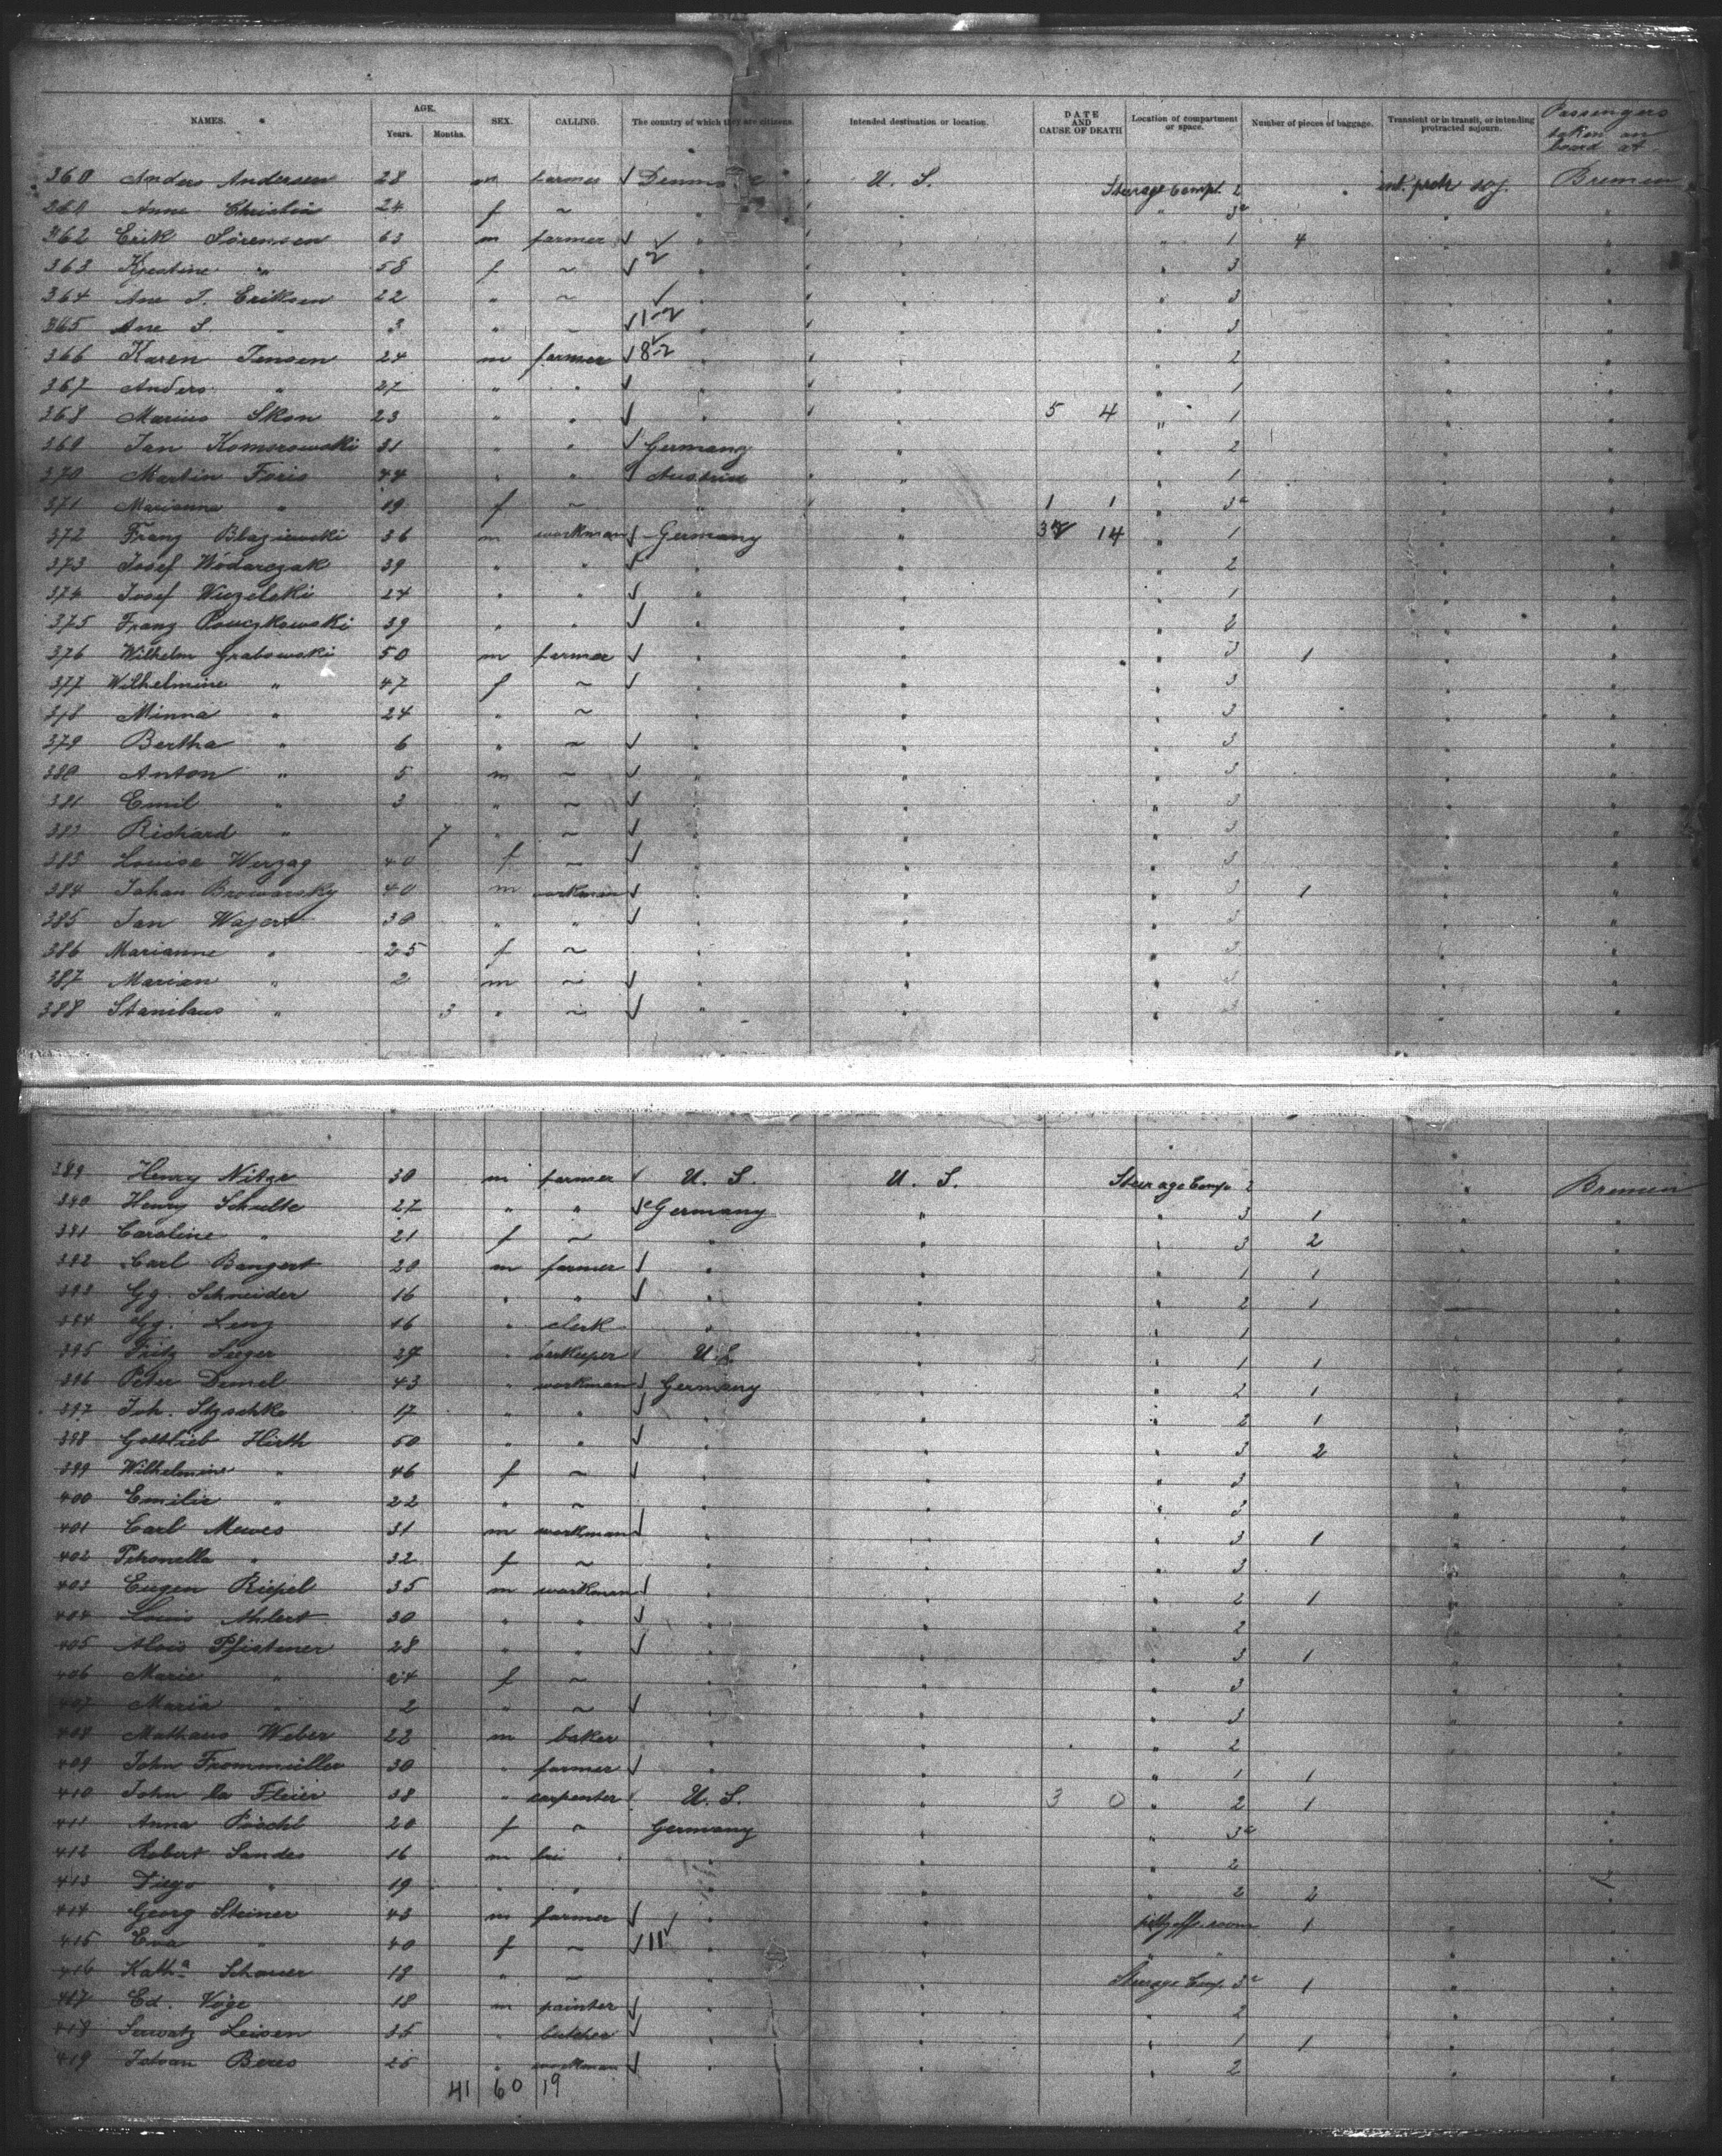 NAMES. AGE. Years. Months. SEX. CALLING. The country of which they are citizens. Intended destination or location. DATE AND CAUSE OF DEATH Location of compartment or space. Number of pieces of baggage. Transient or in transit, or intending protracted sojourn. Passengers taken on board at
360 Anders Andersen 28 m farmer ✓ U. S. Steerage Compt. 2 int. protr soj. Bremen
361 Anne Christin 24 f ~ " " " 3a " "
362 Erik Sörensen 63 m farmer ✓ ✓ " " " 1 4 " "
363 " 58 f ~ ✓ 2 " " " 3 " "
364 Ane J. Eriksen 22 " ~ ✓ " " " 3 " "
365 Ane S. " 3 " ~ ✓ 1-2 " " " 3 " "
366 Karen Jensen 24 m farmer ✓ 8-2 " " " 2 " "
367 Anders " 27 " " ✓ " " " 1 " "
368 Marius Skon 23 " " ✓ " " 5 4 " 1 " "
369 Jan Komorowski 31 " " ✓ Germany " " 2 " "
370 Martin Foris 44 " " Austria " " 1 " "
371 Marianna " 19 f ~ " " 1 1 " 3a " "
372 Franz Blaziewski 36 m workman ✓ Germany " 14 " 1 " "
373 Josef Wodarczak 39 " " ✓ " " " 2 " "
374 Josef 24 " " ✓ " " " 1 " "
375 Franz 39 " " ✓ " " " 2 " "
376 Wilhelm Grabowski 50 m farmer ✓ " " " 3 1 " "
377 Wilhelmine " 47 f ~ ✓ " " " 3 " "
378 Minna " 24 " ~ " " " 3 " "
379 Bertha " 6 " ~ ✓ " " " 3 " "
380 Anton " 5 m ~ ✓ " " " 3 " "
381 Emil " 3 " ~ ✓ " " " 3 " "
382 Richard " 7 " ~ ✓ " " " 3 " "
383 Louise Werzag 40 f ~ ✓ " " " 3 " "
384 Johan Browarsky 40 m workman ✓ " " " 3 1 " "
385 Jan Wajert 30 " " ✓ " " " 3 " "
386 Marianne " 25 f ~ " " " 3 " "
387 Marian " 2 m ~ ✓ " " " 3 " "
388 Stanilaus " 3 " ~ ✓ " " " 3 " "
389 Henry Nitze 30 m farmer ✓ U. S. U. S. Steerage Comp. 2 " Bremen
390 Henry Schulte 27 " " ✓ Germany " " 3 1 " "
391 Caroline " 21 f ~ " " " 3 2 "
392 Carl Bangert 20 m farmer ✓ " " " 1 1 " "
393 Gg. Schneider 16 " " ✓ " " " 2 1 "
394 Gg. Lenz 16 " clerk " " " 1 " "
395 Fritz Sieger 27 " barkeeper U. S. " " 1 1 " "
396 Peter Demel 43 " workman ✓ Germany " " 2 1 " "
397 Joh. 17 " " ✓ " " " 2 1 " "
398 Gottlieb Hirth 50 " " ✓ " " " 3 2 " "
399 Wilhelmine " 46 f ~ ✓ " " " 3 " "
400 Emilie " 22 " ~ " " " 3 " "
401 Carl Mewes 31 m workman ✓ " " " 3 1 " "
402 Petronella " 32 f ~ " " " 3 " "
403 Eugen Riepel 35 m workman ✓ " " " 2 1 " "
404 Louis Ahlert 30 " " ✓ " " " 2 " "
405 Alois Pfistener 28 " " ✓ " " " 3 1 " "
406 Marie " 24 f ~ " " " 3 " "
407 Maria " 2 " ~ ✓ " " " 3 " "
408 Mathaus Weber 22 m baker " " " 2 " "
409 John Frommüller 30 " farmer ✓ " " " 1 1 " "
410 John la Fleur 38 " carpenter U. S. " 3 0 " 2 1 "
411 Anna Pöschl 20 f ~ Germany " " 3a "
412 Robert Sandes 16 m " " " 2 "
413 Diego " 19 " " " " " 2 2 "
414 Georg Steiner 43 m farmer ✓ " " 1 " "
415 Eva " 40 f ~ ✓ 11 ✓ " " " " " "
416 Katha Schauer 18 " ~ " Steerage Comp. 3a 1 " "
417 Ed. Vöge 18 m painter ✓ " " " 2 " "
418 Servatz Leisen 35 " butcher ✓ " " " 1 1 " "
419 Istvan Beres 25 " workman ✓ " " " 2 " "
41 60 19